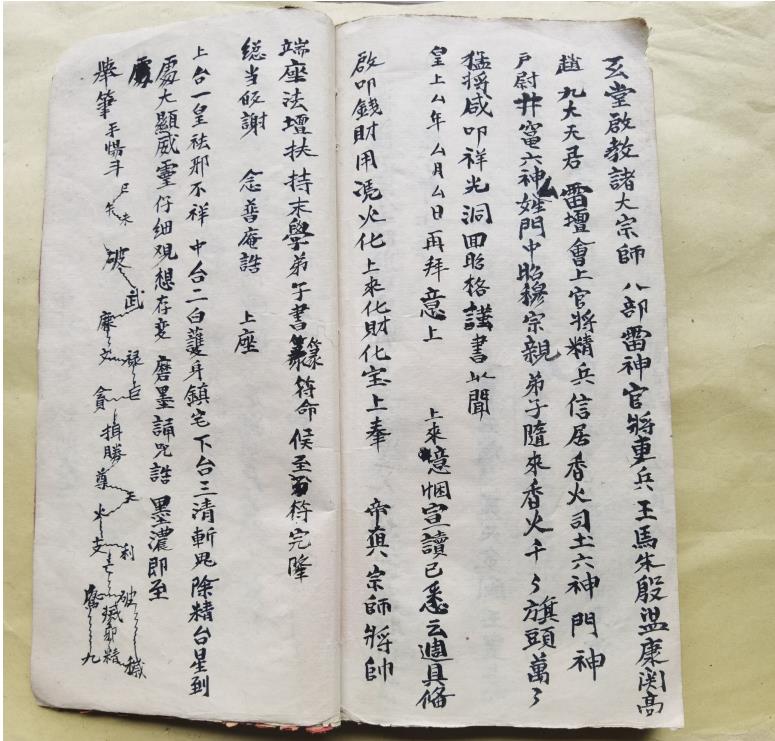 玄堂啟教諸大宗師 八部雷神官將重兵王馬朱殷溫康関高
趙九大天君 雷壇會上官將精兵信居香火司土六神門神
户尉井竈六神厶姓門中昭穆宗親弟子隨來香火千々旗頭萬々
猛將咸叩祥光洞回昭格謹書以聞
皇上厶年厶月厶日再拜意上 上來意悃宣讀已悉云週具俻
啟叩錢財用憑火化上來化財化宝上奉 帝真宗師將帥
端座法壇扶持末學弟子書篆符命侯至符完隆
緦当皈謝 念普庵誥 上座
上台一皇祛邪不祥中台二白護身鎮宅下台三清斬鬼除精台星到
處大顯威靈仔细观想存变 磨墨誦咒誥 墨濃即至
舉筆
破 武 禄 巨
廉 文 貪
尊 火
破 穢
九